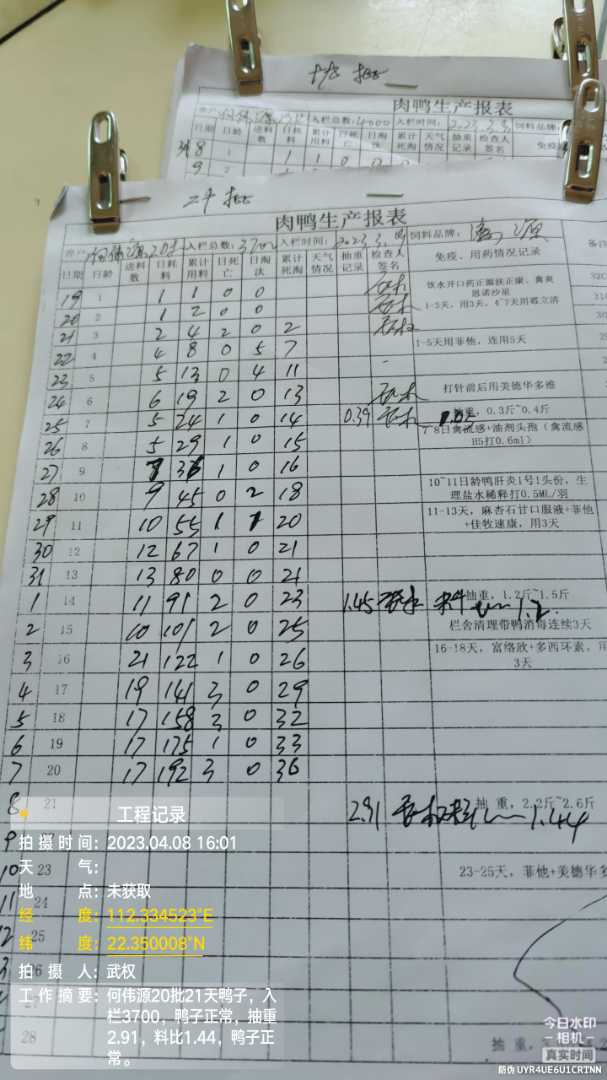 肉鸭生产报表
入栏总数: 4000 入栏时间: 2023.3. 饲料品牌:
日期 日龄 送料数 日耗料 累计用料 日死亡 日淘汰 累计死淘 天气情况 抽重记录 检查人签名
8 1 1 1 0 0
9 2
20批
肉鸭生产报表
客户 何伟源20批 入栏总数: 3700 入栏时间: 2023.3. 饲料品牌:
日期 日龄 送料数 日耗料 累计用料 日死亡 日淘汰 累计死淘 天气情况 抽重记录 检查人签名 免疫、用药情况记录
19 1 1 1 0 0 饮水开口药正瘟扶正康、禽炎
恩诺沙星
20 2 1 2 0 0 1-3天,用3天,
21 3 2 4 2 0 2
22 4 4 8 0 5 7 1-5天用菲他,连用5天
23 5 5 13 0 4 11
24 6 6 19 2 0 13 打针前后用美德华多维
25 7 5 24 1 0 14 0.39 抽重,0.3斤~0.4斤
26 8 5 29 1 0 15 7-8日禽流感+油剂头孢(禽流感
H5打0.6ml)
27 9 36 1 0 16
28 10 9 45 0 2 18 10~11日龄鸭肝炎1号1头份,生
理盐水稀释打0.5ML/羽
29 11 10 55 1 1 20 11-13天,麻杏石甘口服液+菲他
+佳牧速康,用3天
30 12 12 67 1 0 21
31 13 13 80 0 0 21
1 14 11 91 2 0 23 1.45 抽重,1.2斤~1.5斤
2 15 10 101 2 0 25 栏舍清理带鸭消毒连续3天
3 16 21 122 1 0 26 16-18天,富络欣+多西环素,用
3天
4 17 19 141 3 0 29
5 18 17 158 3 0 32
6 19 17 175 1 0 33
7 20 17 192 3 0 36
8 21 2.91 抽重,2.2斤~2.6斤
1.44
9
10 23 23-25天,菲他+美德华多
11 24
25
28 抽重,
工程记录
拍摄时间: 2023.04.08 16:01
天气:
地点: 未获取
经度: 112.334523°E
纬度: 22.350008°N
拍摄人: 武权
工作摘要: 何伟源20批21天鸭子,入
栏3700,鸭子正常,抽重
2.91,料比1.44,鸭子正
常。
今日水印
-相机-
真实时间
防伪 UYR4UE6U1CRTNN